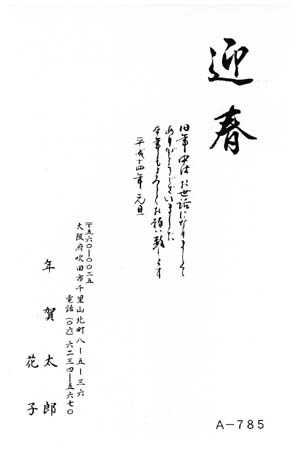 迎春
旧年中はお世話になりまして
ありがとうございました
今年もよろしくお願い致します
平成十四年 元旦
〒五六〇-〇〇二五
大阪府吹田市千里山北町八-五-三六
電話(〇六)六二三四-五六七〇
年賀 太郎
花子
A-785